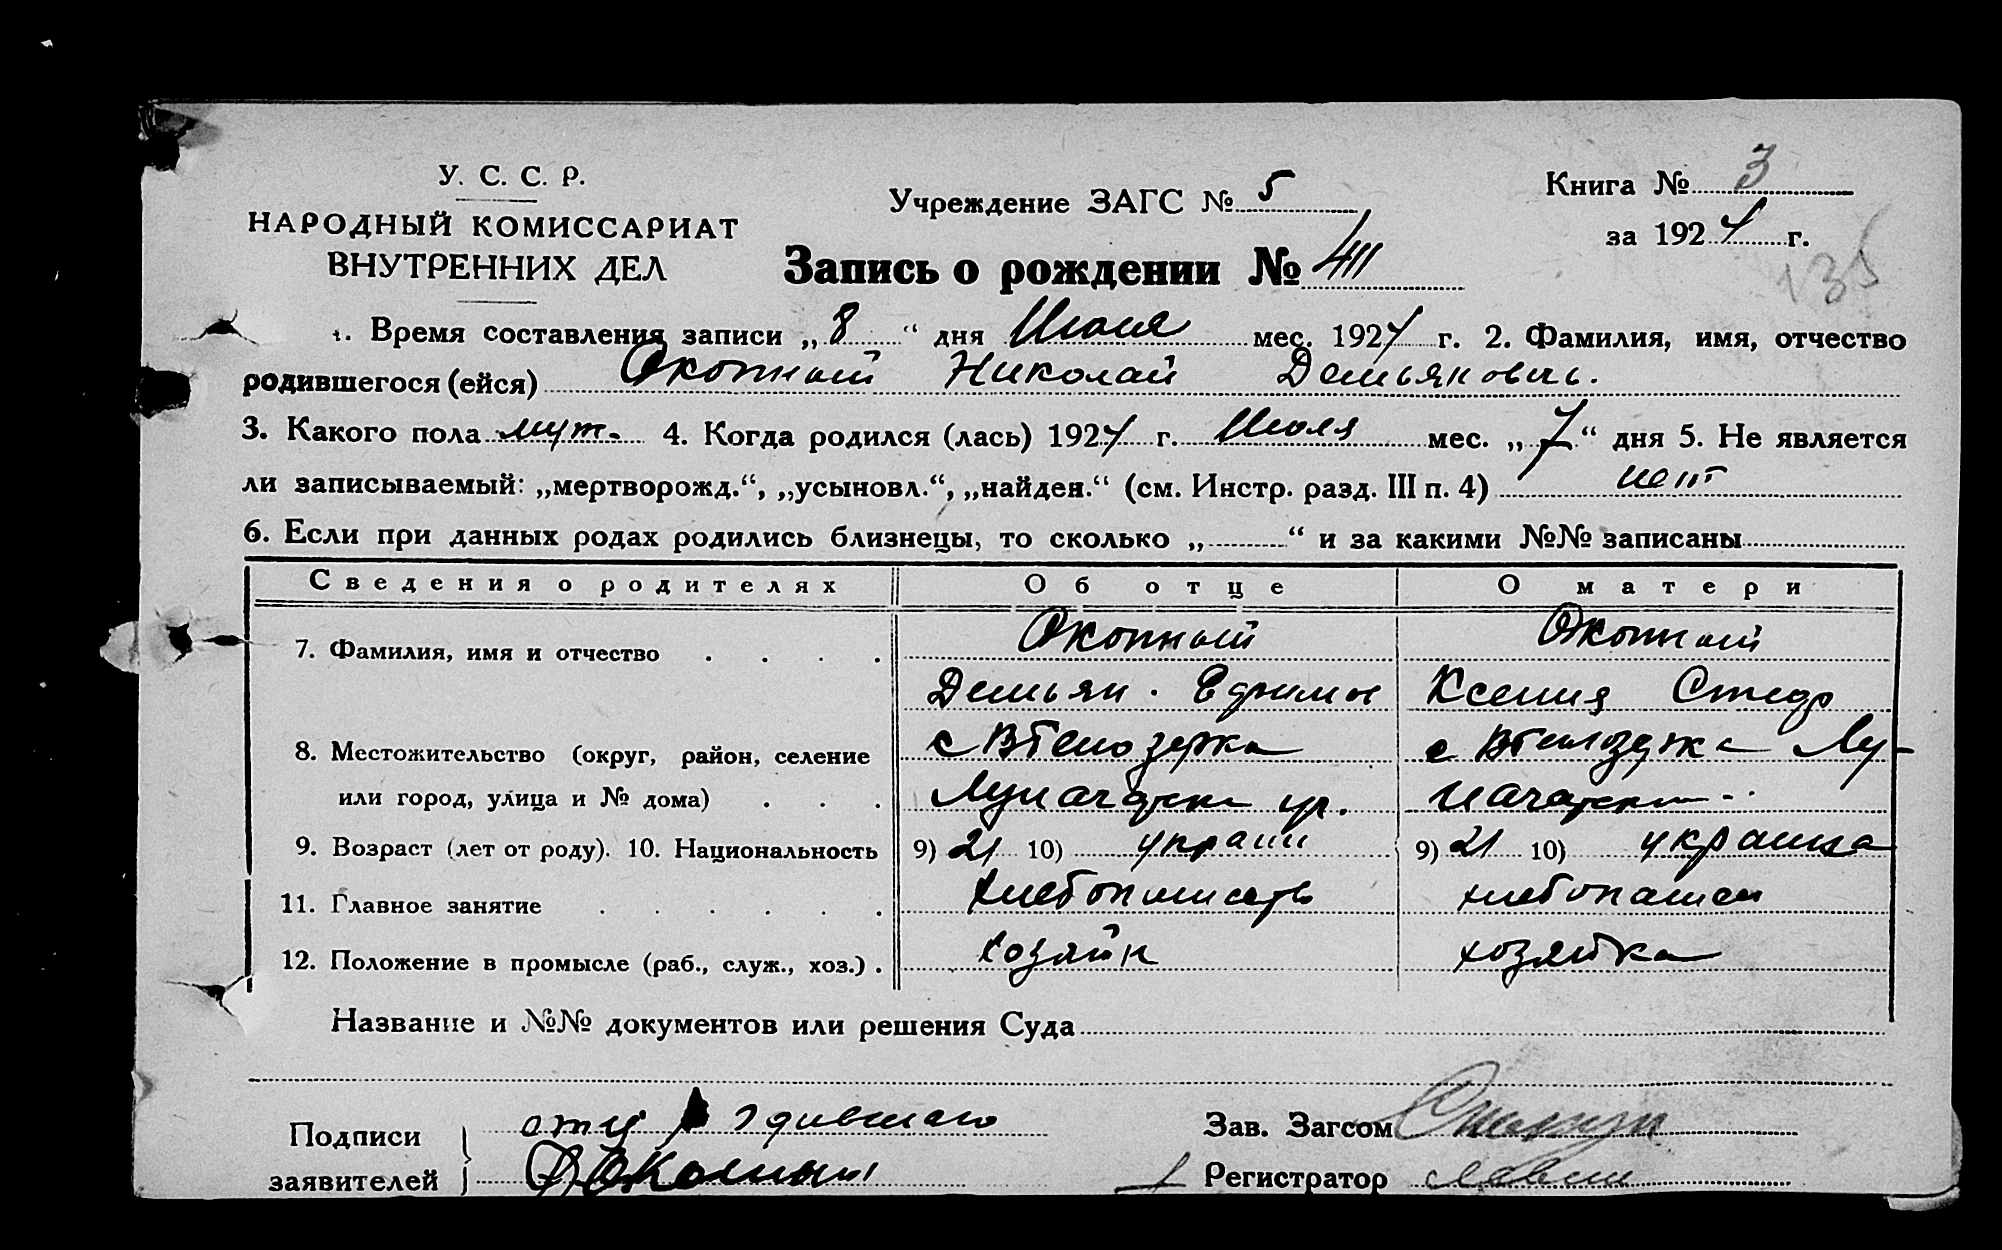 У. С. С. Р.
НАРОДНЫЙ КОМИССАРИАТ
ВНУТРЕННИХ ДЕЛ
Учреждение ЗАГС № 5
Книга № 3
за 1924 г.
Запись о рождении № 411
135
1. Время составления записи „8“ дня Июля мес. 1924 г. 2. Фамилия, имя, отчество
родившегося (ейся) Окопный Николай Демьянович.
3. Какого пола муж. 4. Когда родился (лась) 1924 г. Июля мес. „7“ дня 5. Не является
ли записываемый: „мертворожд.“, „усыновл.“, „найден.“ (см. Инстр. разд. III п. 4) нет
6. Если при данных родах родились близнецы, то сколько „ “ и за какими №№ записаны
Сведения о родителях Об отце О матери
7. Фамилия, имя и отчество Окопный Окопный
Демьян. Ефимов Ксения Стеф
8. Местожительство (округ, район, селение с Белозерка с Лу-
или город, улица и № дома)
9. Возраст (лет от роду). 10. Национальность 9) 21 10) украин 9) 21 10) украинка
11. Главное занятие хлебопашец
12. Положение в промысле (раб., служ., хоз.) хозяин хозяйка
Название и №№ документов или решения Суда
Подписи
заявителей
Зав. Загсом
Регистратор